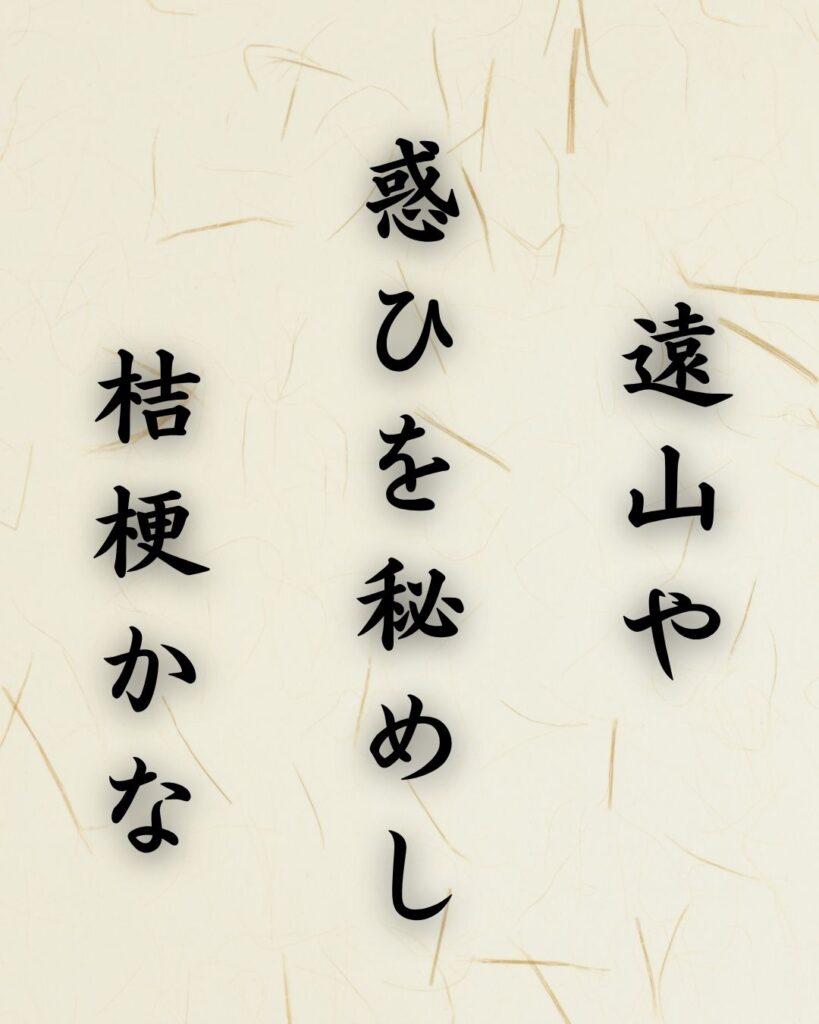 遠山や
惑ひを秘めし
桔梗かな